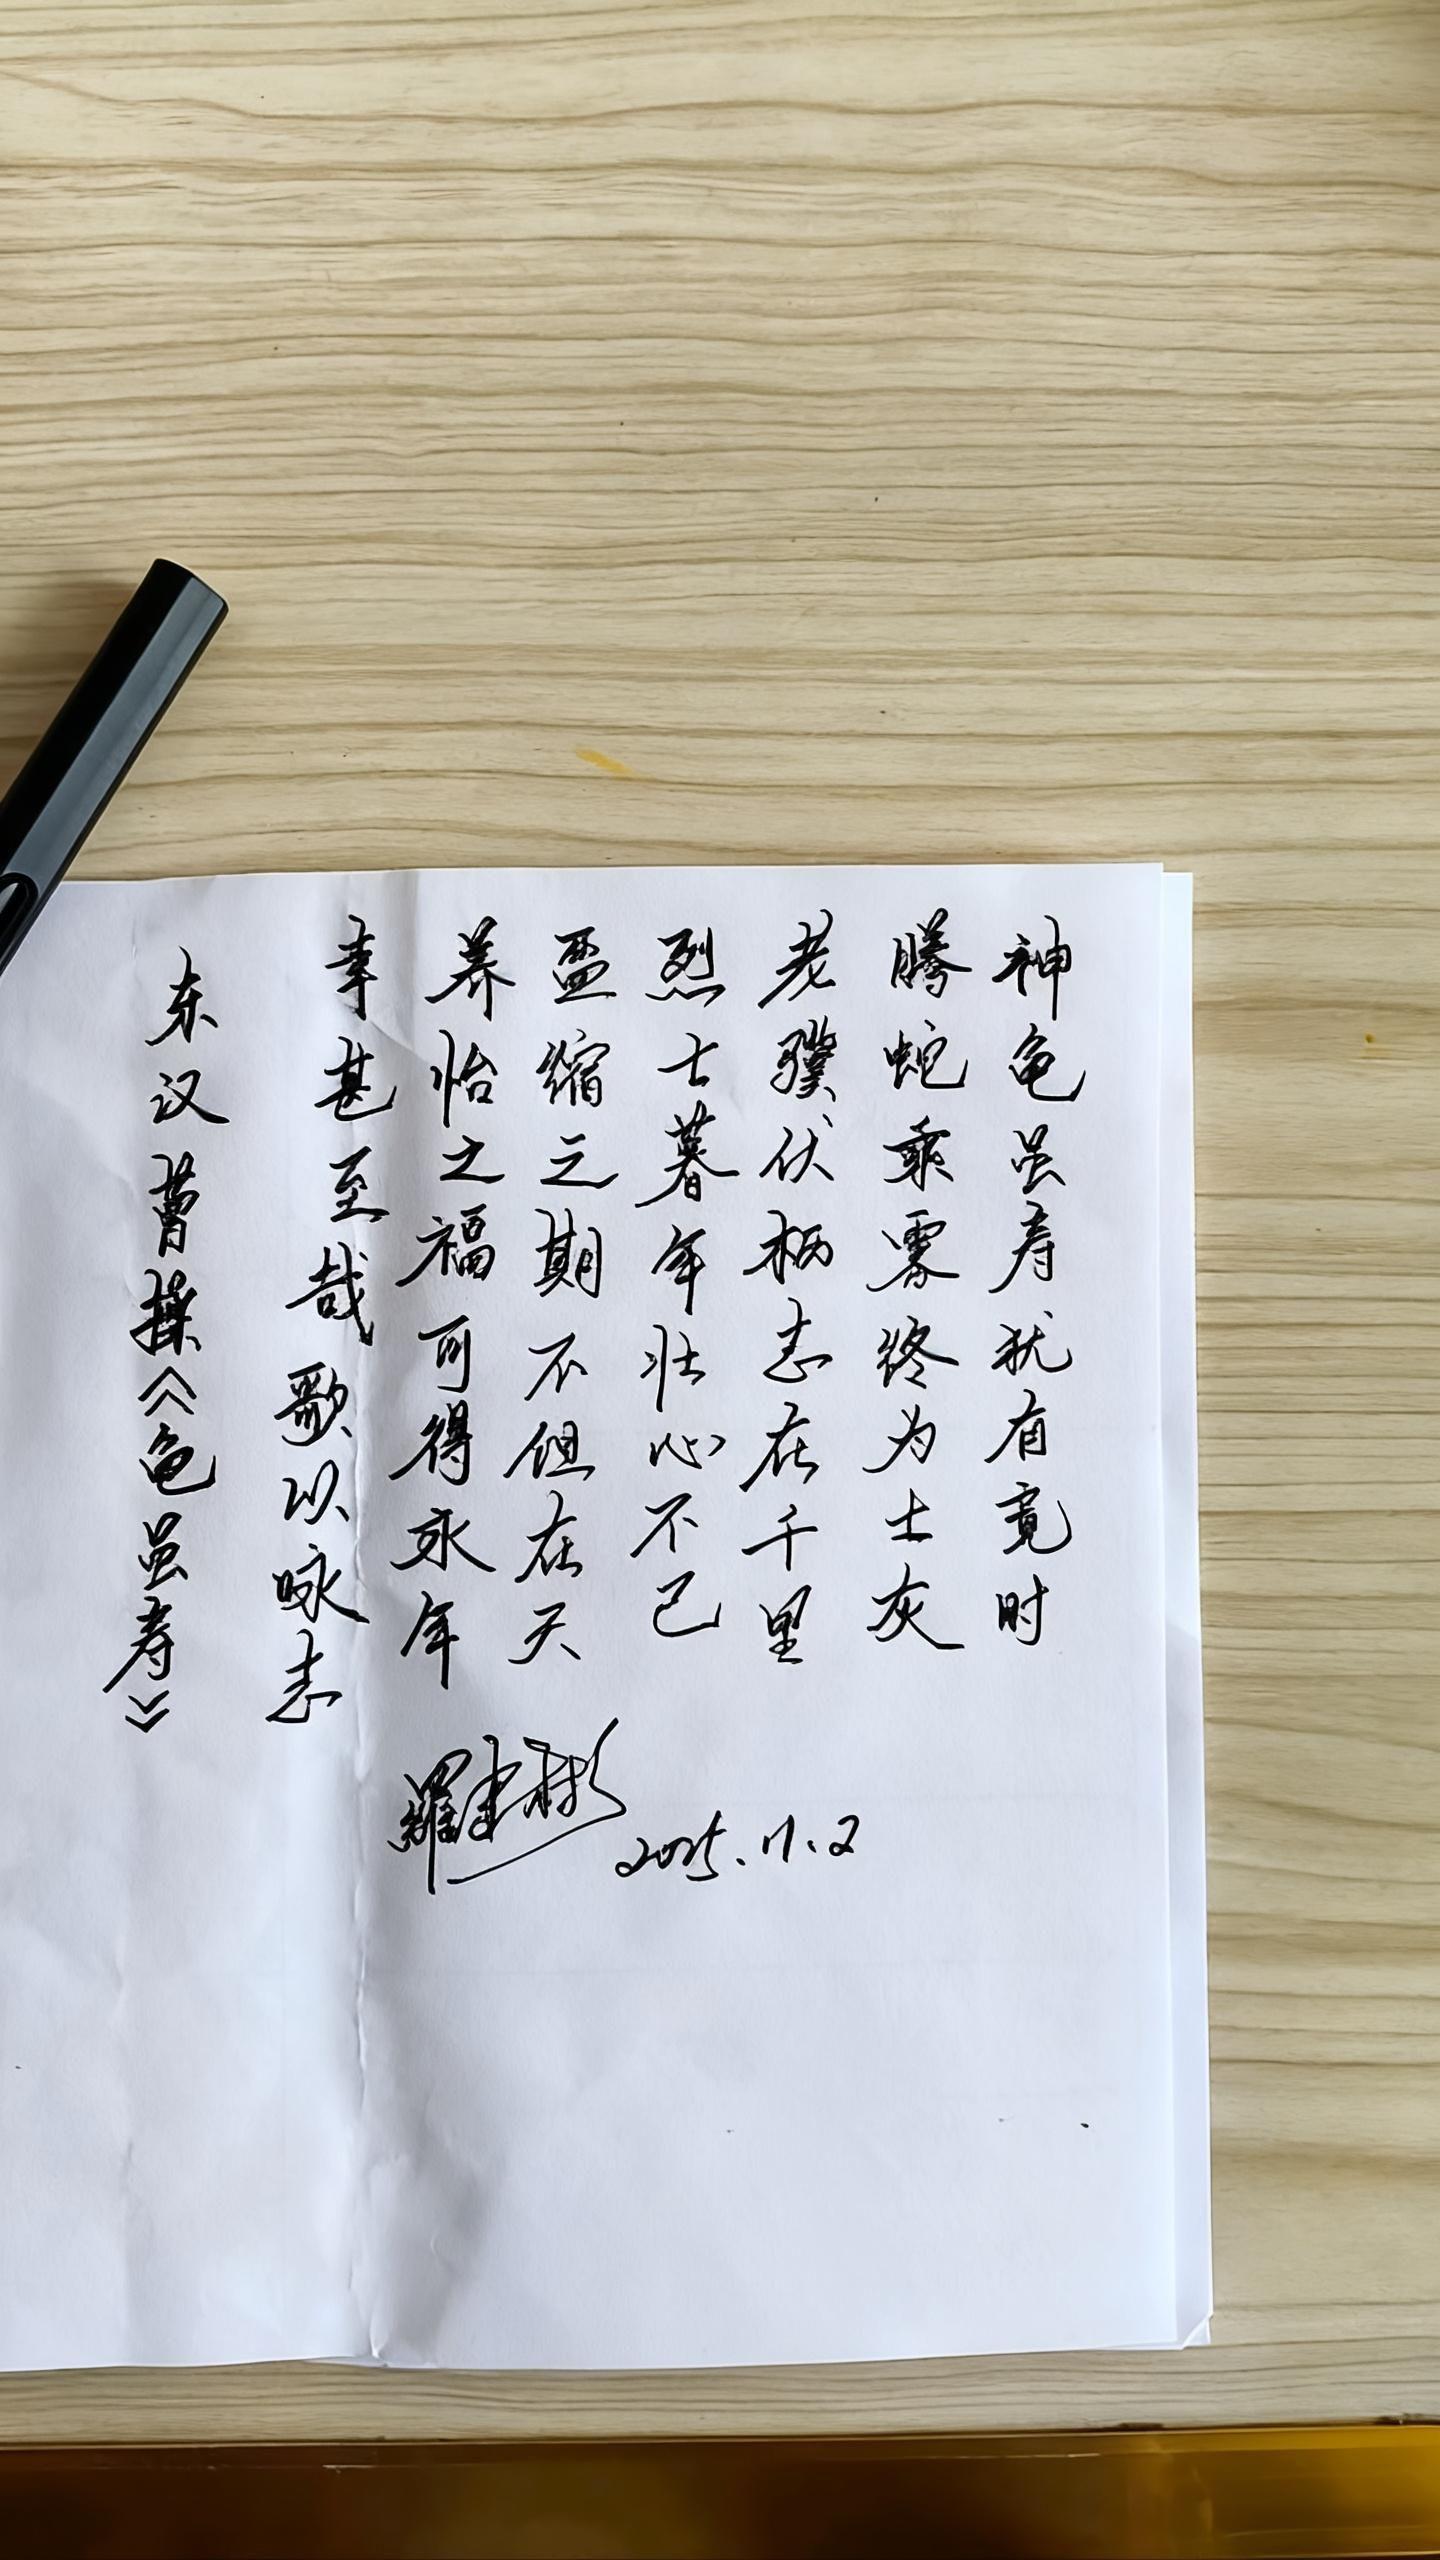 神龟虽寿犹有竟时
腾蛇乘雾终为土灰
老骥伏枥志在千里
烈士暮年壮心不已
盈缩之期不但在天
养怡之福可得永年
幸甚至哉歌以咏志
东汉曹操《龟虽寿》
羅建彬 2025.11.2